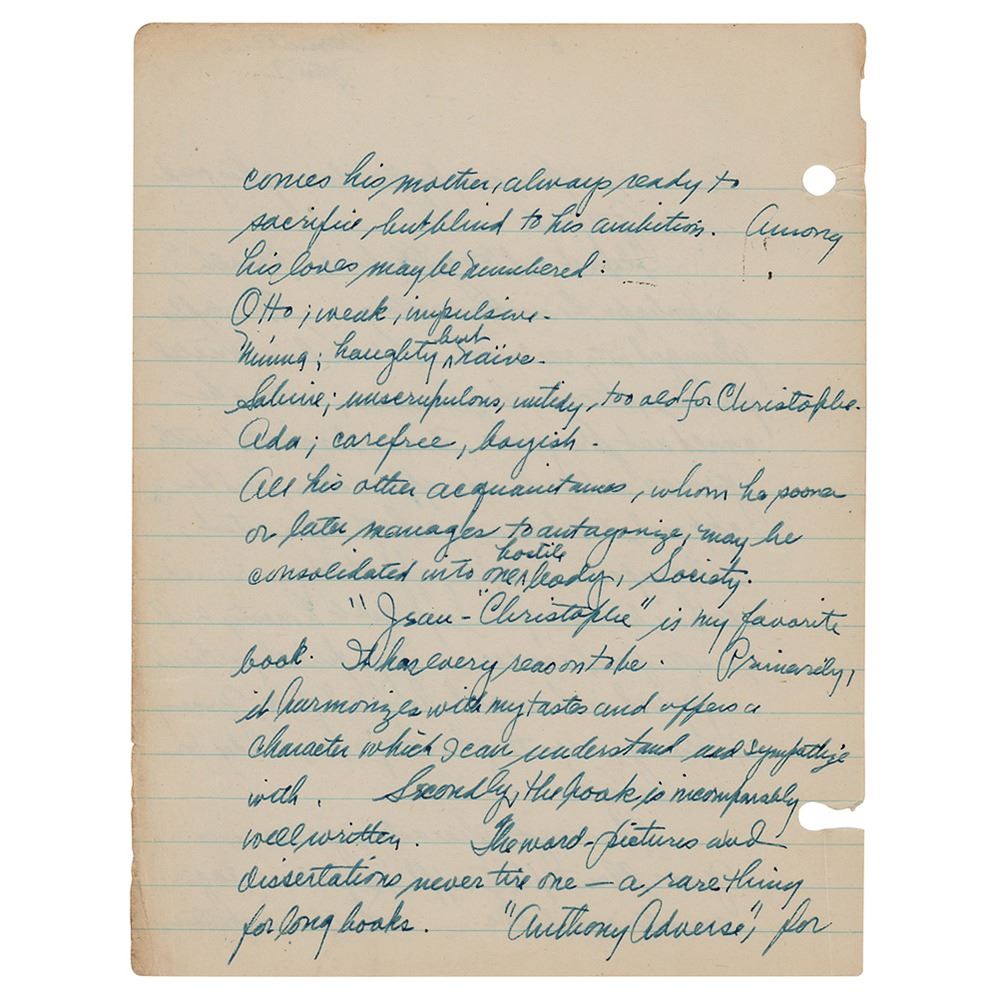 comes his mother, always ready to
sacrifice but blind to his ambition. Among
his loves may be numbered:
Otto; weak, impulsive.
Minna; haughty but naïve.
Sabine; unscrupulous, untidy, too old for Christophe.
Ada; carefree, boyish.
All his other acquaintances, whom he sooner
or later manages to antagonize, may be
consolidated into one hostile body, Society.
"Jean-"Christophe" is my favorite
book. It has every reason to be. Primarily,
it harmonizes with my tastes and offers a
character which I can understand and sympathize
with. Secondly, the book is incomparably
well written. The word-pictures and
dissertations never tire one — a rare thing
for long books. "Anthony Adverse", for